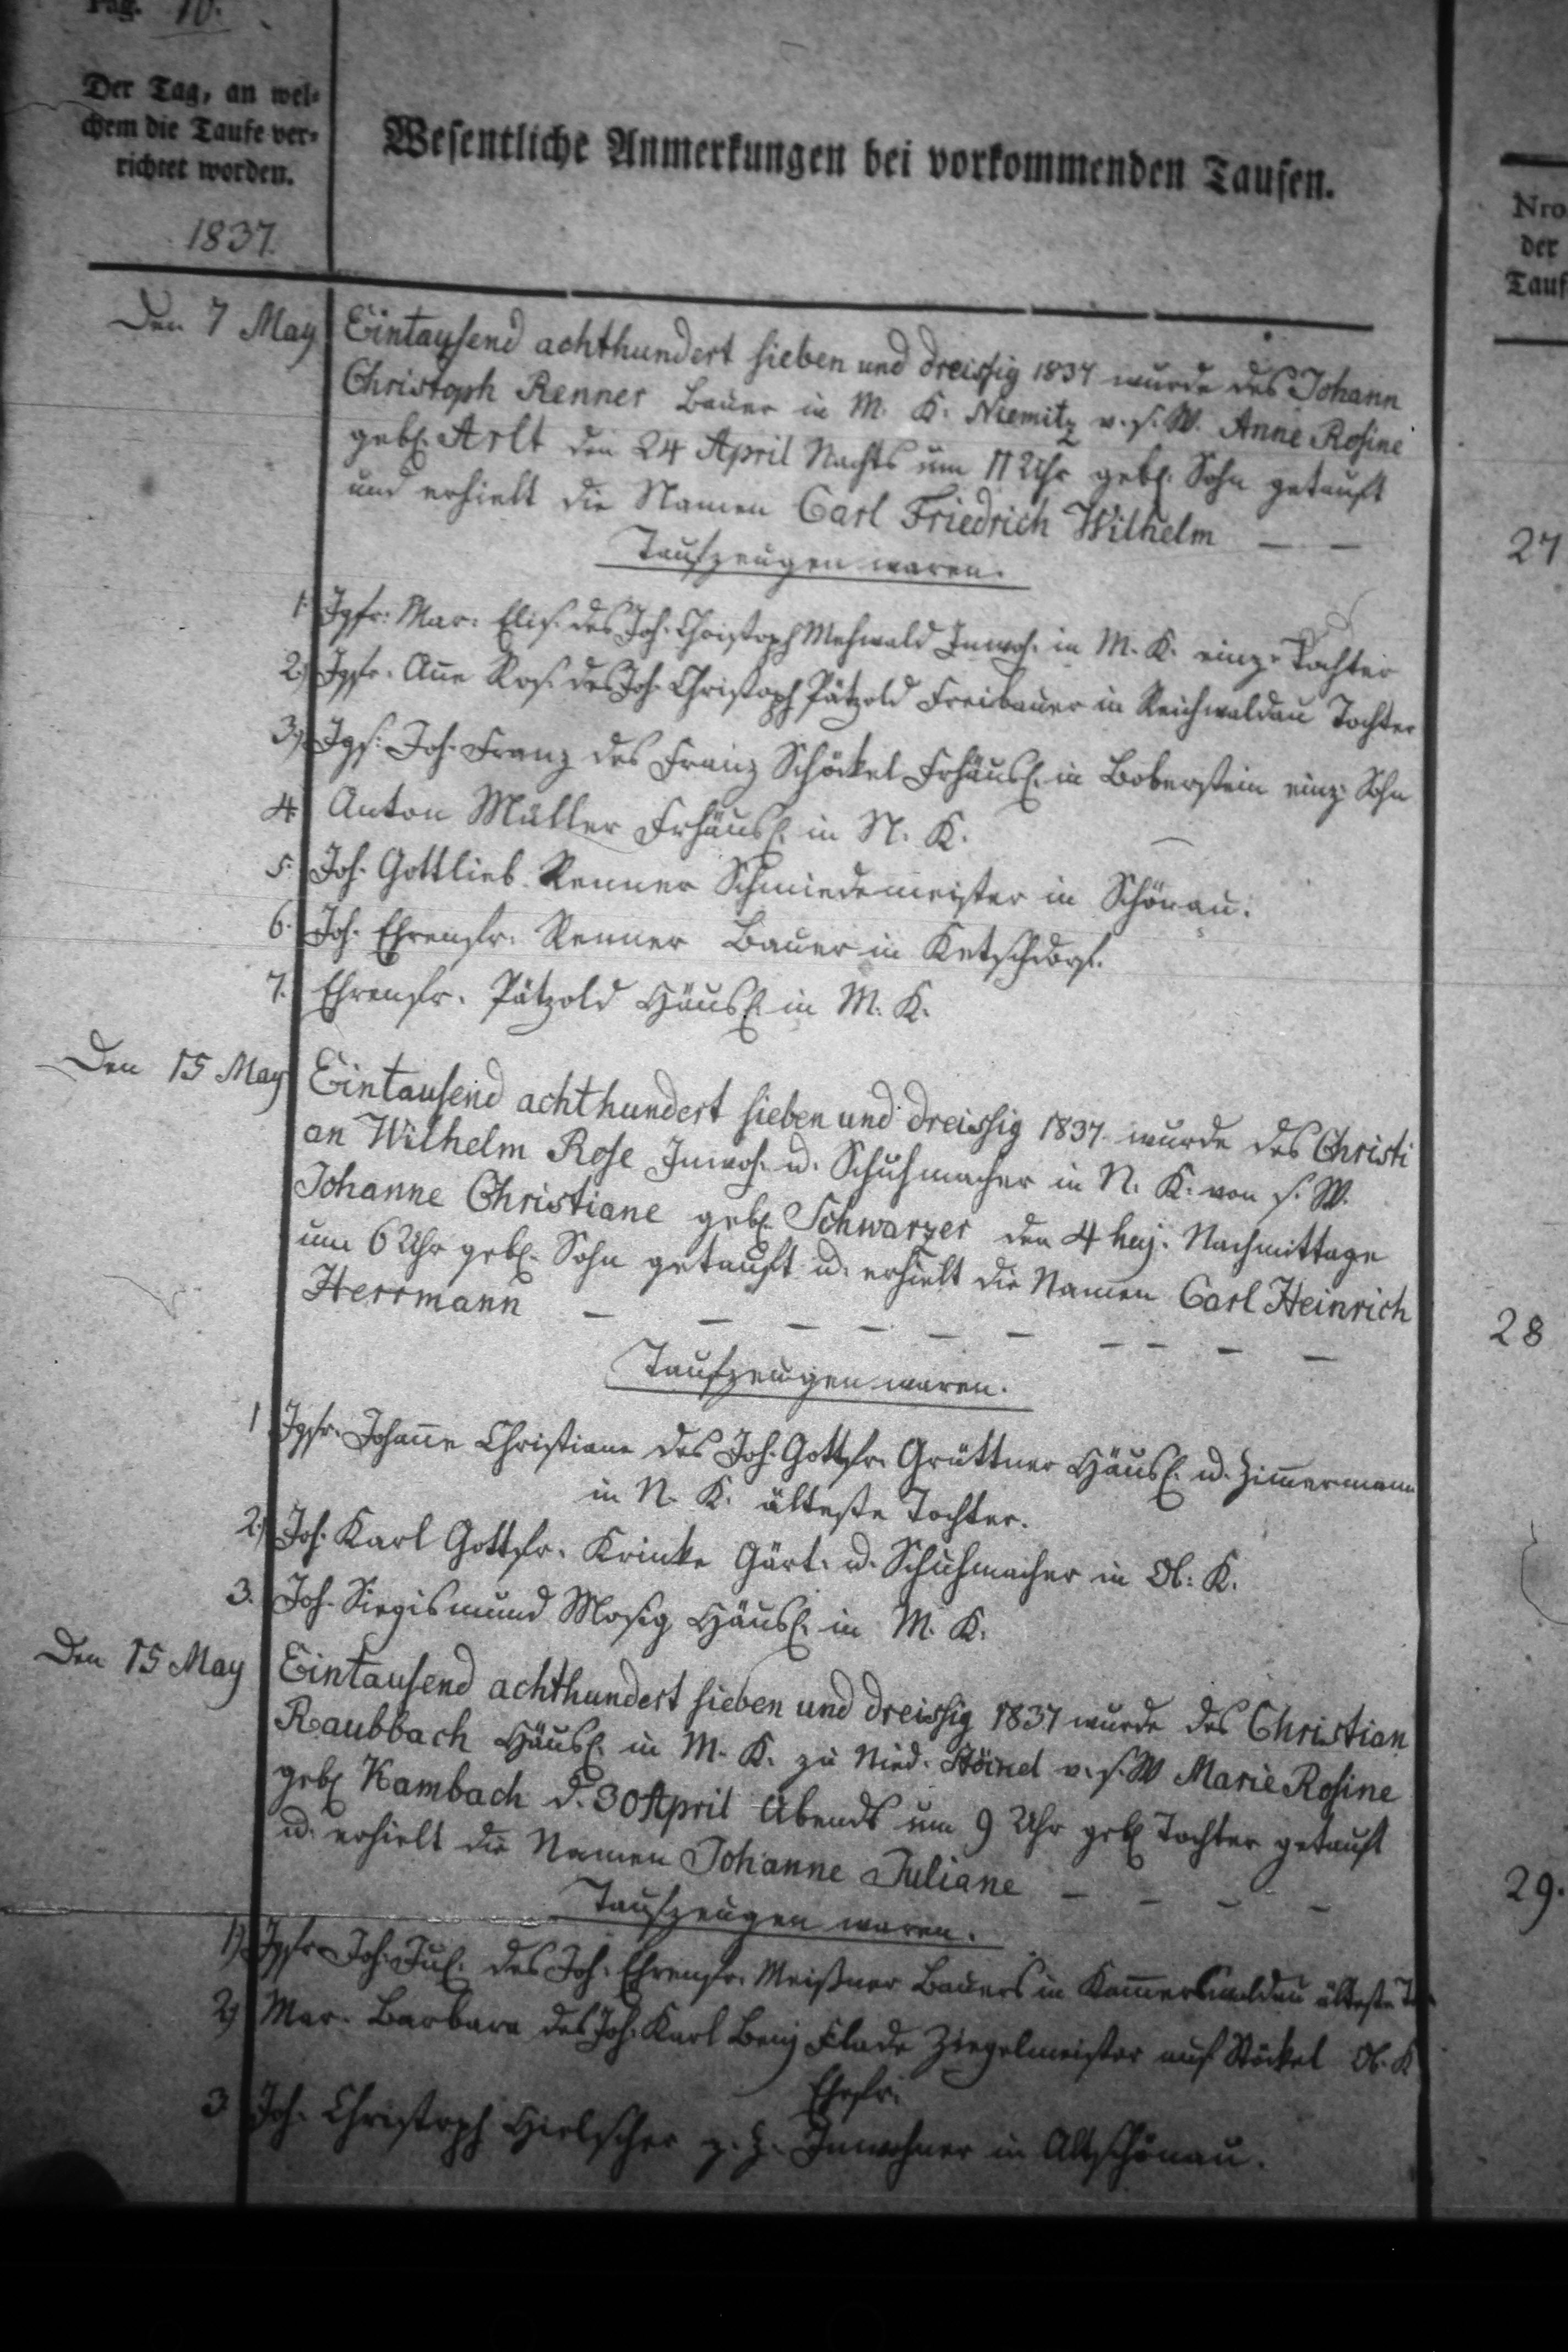 Pag. 10.
Der Tag, an wel-
chem die Taufe ver-
richtet worden.
1837.
Wesentliche Anmerkungen bei vorkommenden Taufen.
Nro
der
Tauf
Den 7 May
Eintausend achthundert sieben und dreissig 1837 wurde des Johann
Christoph Renner Bauer in M. K. Niemitz v. s. W. Anne Rosine
geb. Arlt den 24 April Nachts um 11 Uhr geb. Sohn getauft
und erhielt die Namen Carl Friedrich Wilhelm — —
27
Taufzeugen waren.
1. Jgfr. Mar. Elis. des Joh. Christoph Mehwald Inwoh. in M. K. einz. Tochter
2.) Jgfr. Ane Ros. des Joh. Christoph Pätzold Freibauer in Reichwaldau Tochter
3.) Jgs. Joh. Franz des Franz Schöckel Frhäusl. in Boberstein einz. Sohn
4. Anton Müller Frhäusl. in N. K.
5. Joh. Gottlieb Renner Schmiedemeister in Schönau.
6. Joh. Ehrenfr. Renner Bauer in Ketschdorf.
7. Ehrenfr. Pätzold Häusl. in M. K.
Den 15 May
Eintausend achthundert sieben und dreissig 1837. wurde des Christi
an Wilhelm Rose Inwoh. u. Schuhmacher in N. K. von s. W.
Johanne Christiane geb. Schwarzer den 4 huj. Nachmittage
um 6 Uhr geb. Sohn getauft u. erhielt die Namen Carl Heinrich
Herrmann — — — — — — — — — —
28
Taufzeugen waren.
1 Jgfr. Johane Christiane des Joh. Gottfr. Grüttner Häusl. u. Zimermann
in N. K. älteste Tochter.
2.) Joh. Karl Gottfr. Krinke Gärt. u. Schuhmacher in Ob. K.
3. Joh. Siegismund Mosig Häusl. in M. K.
Den 15 May
Eintausend achthundert sieben und dreissig 1837 wurde des Christian
Raubbach Häusl. in M. K. zu Nied. v. s. W Marie Rosine
geb Kambach d. 30 April Abends um 9 Uhr geb Tochter getauft
u. erhielt die Namen Johanne Juliane — — — —
29.
Taufzeugen waren.
1) Jgfr. Joh. Jul. des Joh. Ehrenfr. Meißner Bauers in Kamerswaldau älteste
2) Mar. Barbara des Joh. Karl Benj Flade Ziegelmeister auf Stöckel Ob. K
Ehefr.
3 Joh. Christoph Hielscher z. Z. Inwohner in Altschönau.